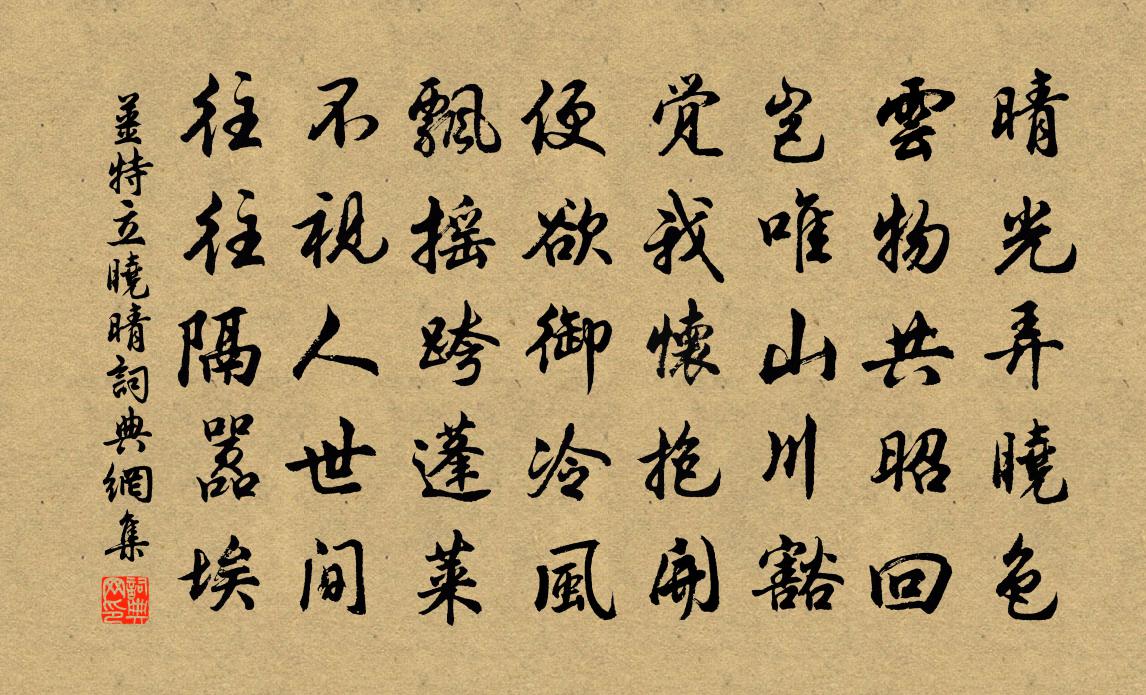 晴光弄曉色
雲物共昭回
豈唯山川豁
覚我懷抱開
便欲御冷風
飄摇跨蓬萊
不視人世間
往往隔囂埃
姜特立曉晴詞典網集
詞典網印